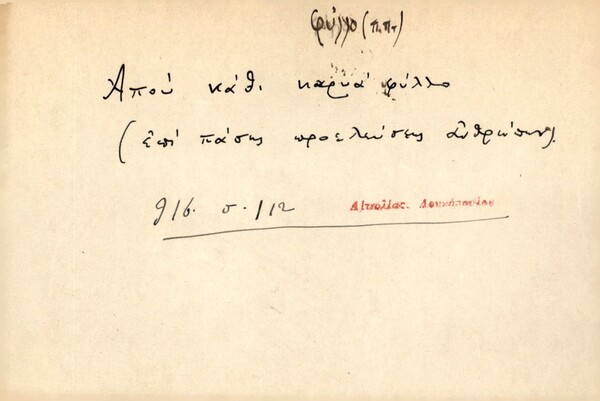 φύλλο (π.πτ)
Απού κάθι καρυά φύλλο
(ἐπί πάσης προελεύσεως ἀνθρώπων).
916. σ. 112
Αἰτωλίας.